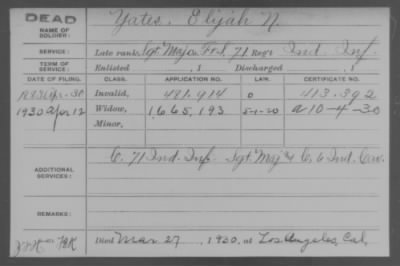 DEAD
NAME OF SOLDIER: Yates, Elijah N.
SERVICE: Late rank, Sgt Major F&S 71 Reg't Ind. Inf.
TERM OF SERVICE: Enlisted , 1 Discharged , 1
DATE OF FILING. CLASS. APPLICATION NO. LAW. CERTIFICATE NO.
Apr. 30 Invalid, 481.914 413.392
1930 Apr 12 Widow, 1665,193 5-1-20 a10-4-30
Minor,
ADDITIONAL SERVICES: C. 71 Ind. Inf. Sgt Maj & C. 6 Ind. Cav.
REMARKS:
Died Mar 27, 1930, at Los Angeles, Cal.